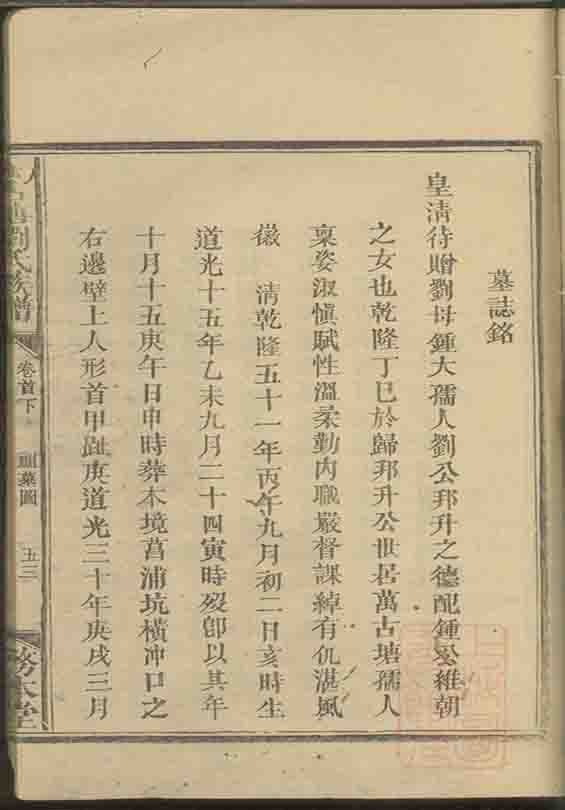 墓誌銘
皇清待贈劉母鍾大孺人劉公邦升之德配鍾公維朝
之女也乾隆丁巳於歸邦升公世居萬古塘孺人
稟姿淑慎賦性溫柔勤內職嚴督課綽有仉湛風
徽　清乾隆五十一年丙午九月初二日亥時生
道光十五年乙未九月二十四寅時歿卽以其年
十月十五庚午日申時葬本境菖浦坑橫冲口之
右邊壁上人形首甲趾庚道光三十年庚戌三月
劉氏族譜
卷首下
圖
五三